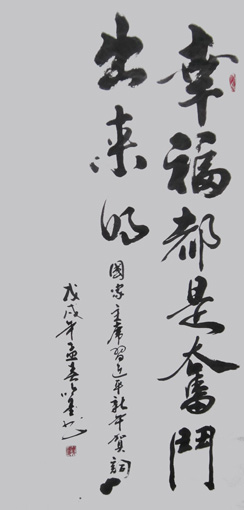 幸福都是奮鬥
出来的
國家主席習近平新年賀詞
戊戌年孟春